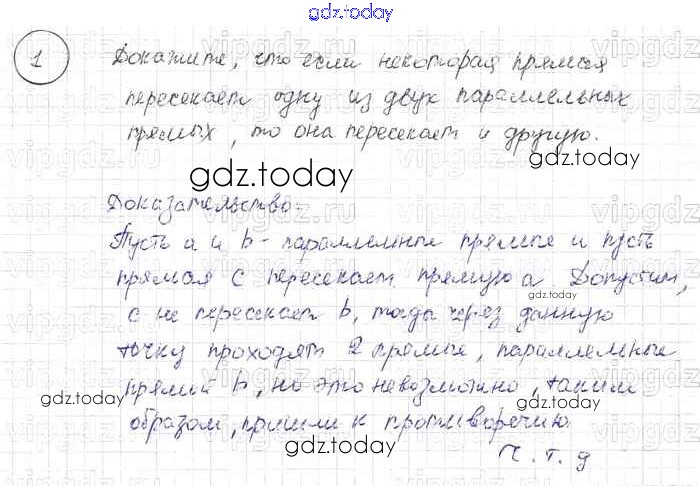 gdz.today
1 Докажите, что если некоторая прямая
пересекает одну из двух параллельных
прямых, то она пересекает и другую.
gdz.today
Доказательство:
Пусть a и b - параллельные прямые и пусть
прямая c пересекает прямую a Допустим,
gdz.today
c не пересекает b, тогда через данную
точку проходят 2 прямые, параллельные
прямой b, но это невозможно, таким
gdz.today gdz.today
образом, пришли к противоречию.
ч. т. д